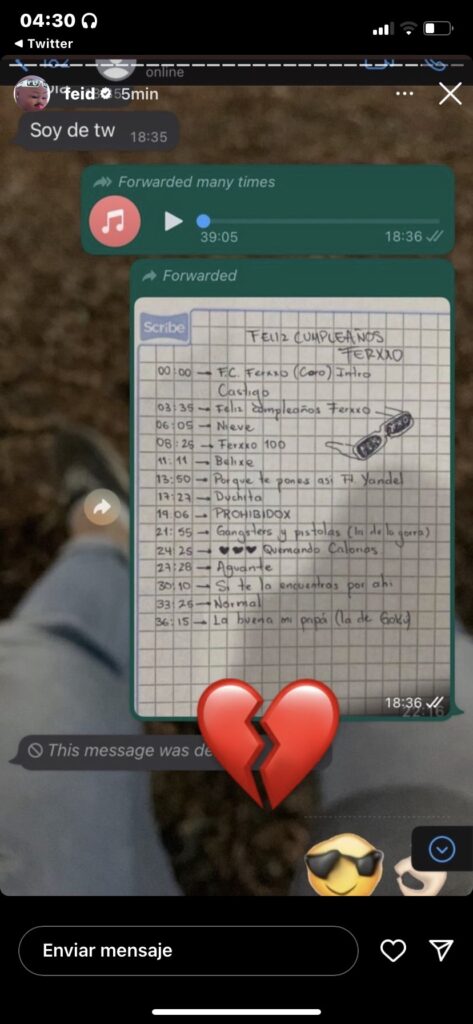 04:30
Twitter
online
feid 5min
Soy de tw 18:35
Forwarded many times
39:05 18:36
Forwarded
Scribe
FELIZ CUMPLEAÑOS
FERXXO
00:00 → F.C. Ferxxo (Coro) Intro
Castigo
03:35 → Feliz cumpleaños Ferxxo
06:05 → Nieve
08:25 → Ferxxo 100
11:11 → Belixe
13:50 → Porque te pones asi Ft Yandel
17:27 → Duchita
19:06 → PROHIBIDOX
21:55 → Gangsters y pistolas (la de la gorra)
24:25 → ♥♥♥ Quemando Calorias
27:28 → Aguante
30:10 → Si te la encuentras por ahi
33:25 → Normal
36:15 → La buena mi papá (la de Goku)
18:36
22:16
This message was de
Enviar mensaje